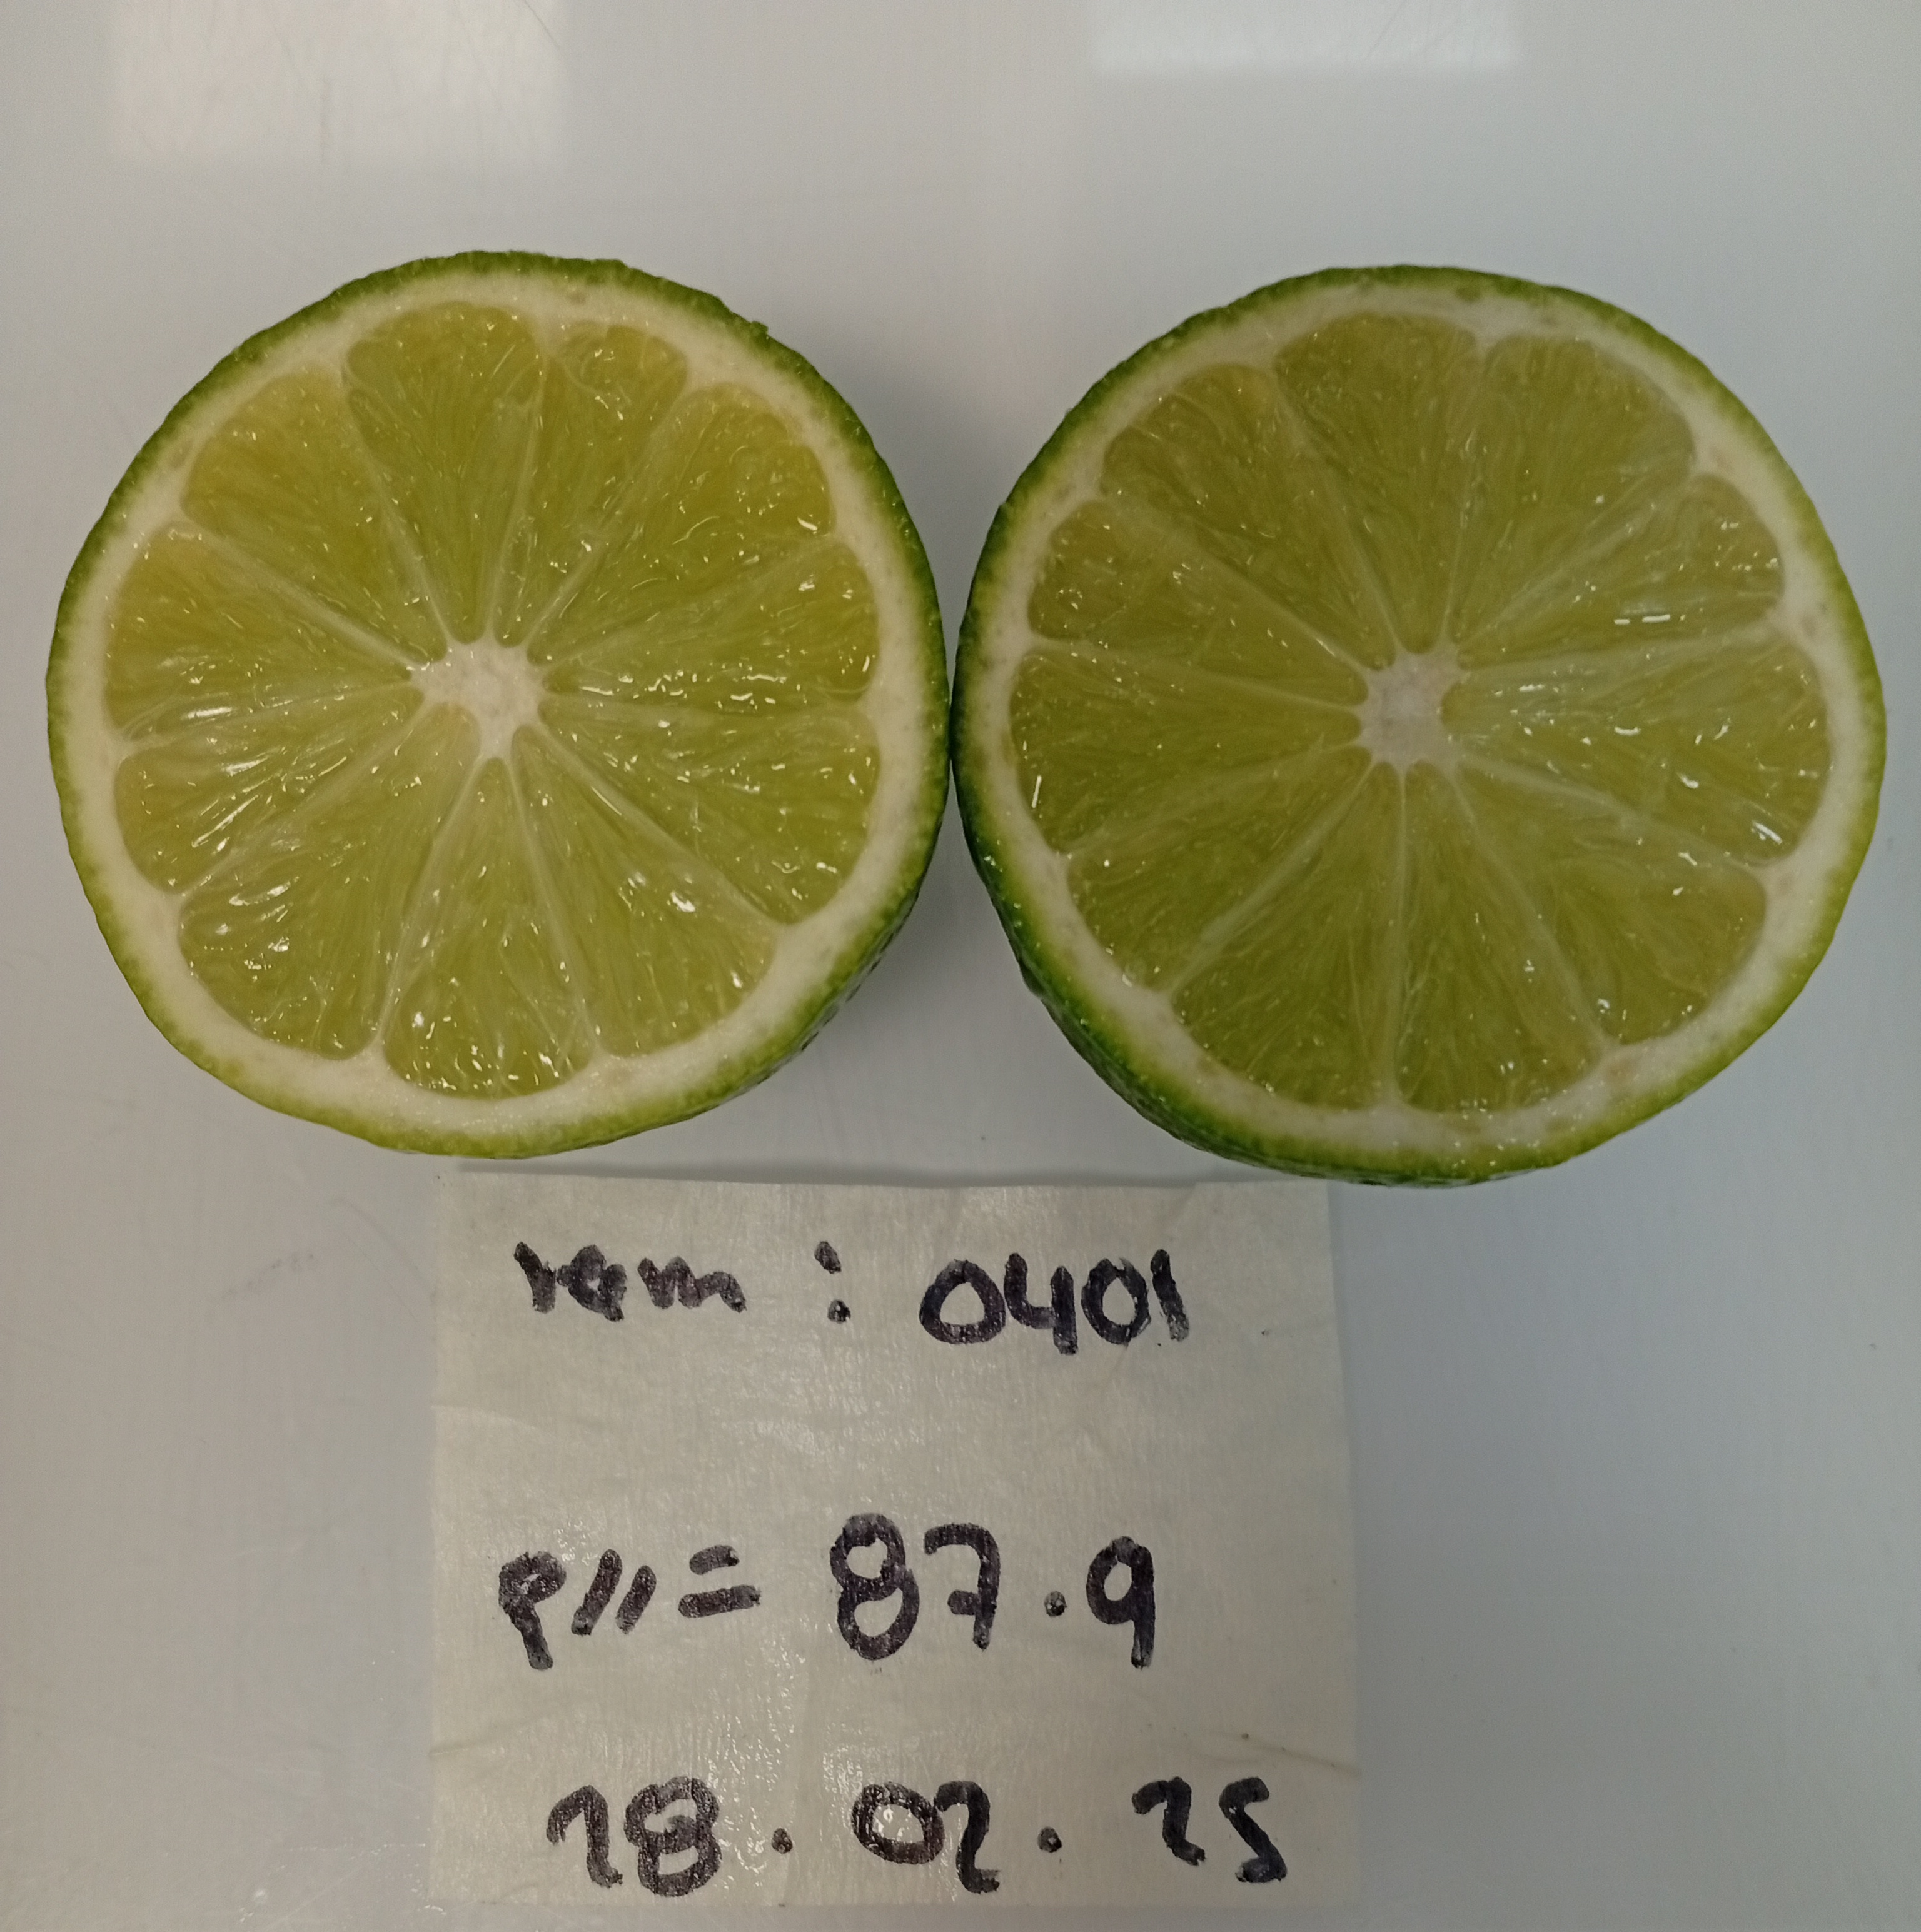 rem : 0401
P// = 87.9
28.02.25